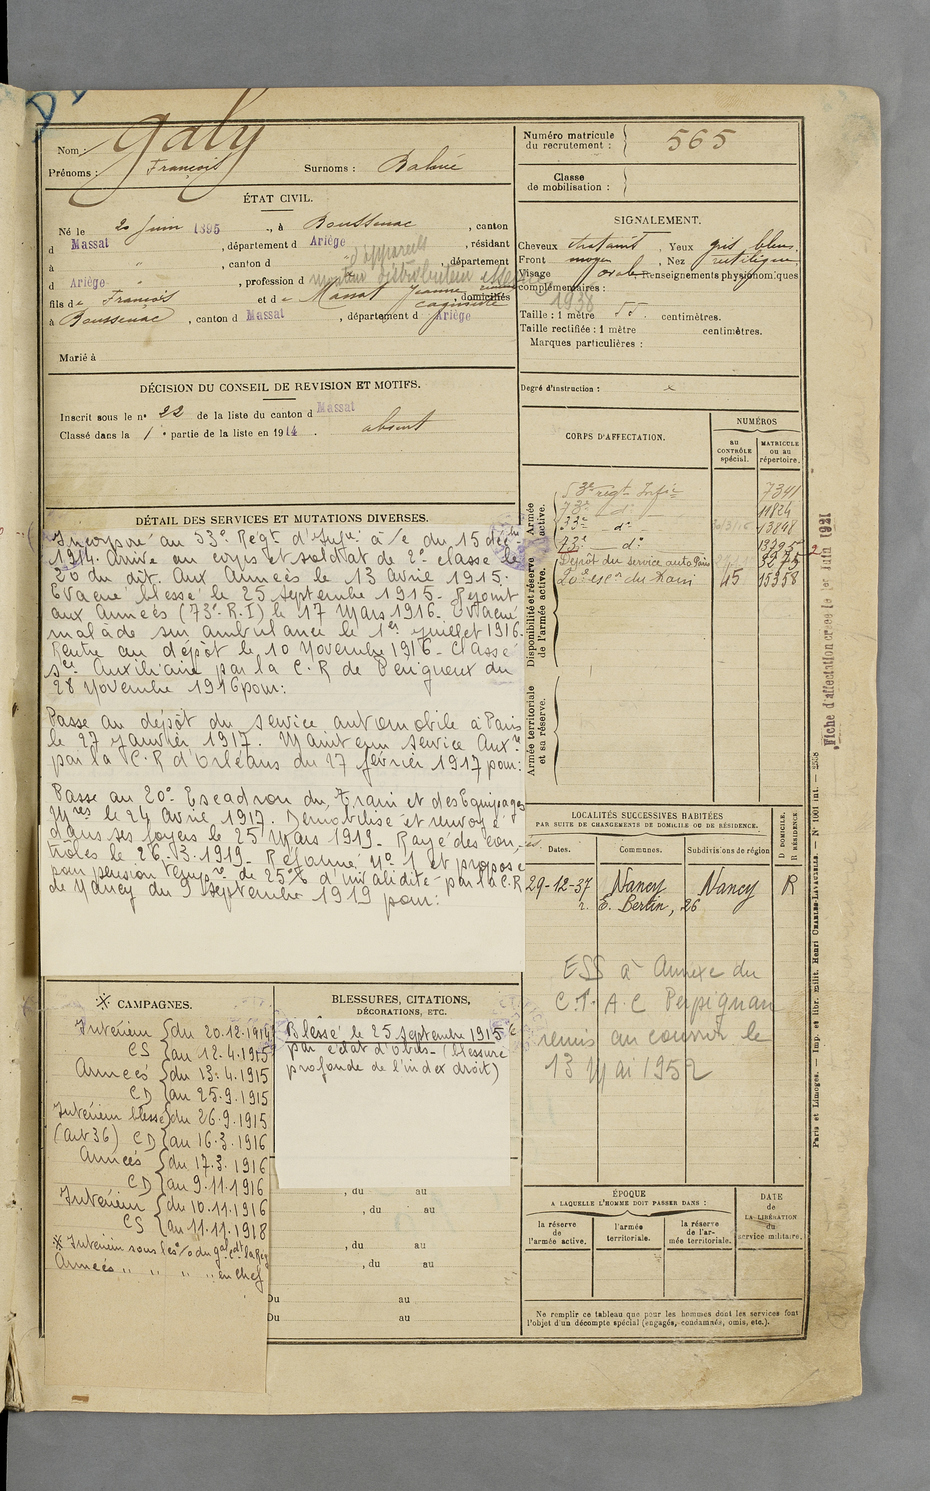 Nom : Galy
Prénoms : François Surnoms : Balané
Numéro matricule du recrutement : 565
Classe de mobilisation :
ÉTAT CIVIL.
Né le 20 Juin 1895, à Boussenac, canton
d Massat, département d Ariège, résidant
à ", canton d ", département
d Ariège, profession d moteur distributeur d'appareils essence
fils de François et de Massat Jeanne, domiciliés
à Boussenac, canton d Massat, département d Ariège
Marié à
SIGNALEMENT.
Cheveux chatains, Yeux gris bleus.
Front moyen, Nez rectiligne
Visage ovale Renseignements physionomiques
complémentaires :
1938
Taille : 1 mètre 55. centimètres.
Taille rectifiée : 1 mètre centimètres.
Marques particulières :
Degré d'instruction :
DÉCISION DU CONSEIL DE REVISION ET MOTIFS.
Inscrit sous le n° 22 de la liste du canton d Massat
Classé dans la 1e partie de la liste en 1914. absent
CORPS D'AFFECTATION.
NUMÉROS
au CONTRÔLE spécial.
MATRICULE ou au répertoire.
Armée active.
53e regt Infie 7341
73e do 11824
33e do 13848
73e do
Disponibilité et réserve de l'armée active.
Dépôt du Service auto Paris
20e escon du Train 45 15358
Armée territoriale et sa réserve.
Fiche d'affectation créée le 1er Juin 1931
DÉTAIL DES SERVICES ET MUTATIONS DIVERSES.
Incorporé au 53e Régt d'Infie à/c du 15 déc.
1914. Arrivé au corps et soldat de 2e classe le
20 du dit. Aux Armées le 13 Avril 1915.
Evacué blessé le 25 septembre 1915. Rejoint
aux Armées (73e R.I) le 17 Mars 1916. Evacué
malade sur ambulance le 1er juillet 1916.
Rentré au dépôt le 10 Novembre 1916. Classé
Sce Auxiliaire par la C.R de Périgueux du
28 Novembre 1916 pour:
Passé au dépôt du service automobile à Paris
le 27 Janvier 1917. Maintenu service Auxre
par la C.R d'Orléans du 27 février 1917 pour:
Passé au 20e Escadron du Train et des Equipages
Mres le 24 Avril 1917. Démobilisé et renvoyé
dans ses foyers le 25 Mars 1919. Rayé des con-
trôles le 26.3.1919. Réformé No 1 et proposé
pour pension tempre de 25% d'invalidité par la C.R
de Nancy du 9 septembre 1919 pour:
LOCALITÉS SUCCESSIVES HABITÉES
PAR SUITE DE CHANGEMENTS DE DOMICILE OU DE RÉSIDENCE.
Dates. Communes. Subdivisions de région D DOMICILE, R RÉSIDENCE
29-12-37 Nancy Nancy R
r. E. Bertin, 26
ESS à Annexe du
C.T.A.C Perpignan
remis au courrir le
13 Mai 1952
CAMPAGNES.
Intérieur CS { du 20.12.1914 au 12.4.1915
Armées CD { du 13.4.1915 au 25.9.1915
Intérieur blessé (art 36) CD { du 26.9.1915 au 16.3.1916
Armées CD { du 17.3.1916 au 9.11.1916
Intérieur CS { du 10.11.1916 au 11.11.1918
※ Intérieur sous les o/o du gal Cdt la Reg
Armées " " " " en Chef
BLESSURES, CITATIONS,
DÉCORATIONS, ETC.
Blessé le 25 septembre 1915
par éclat d'obus (blessure
profonde de l'index droit)
, du au
, du au
, du au
, du au
Du au
Du au
ÉPOQUE
A LAQUELLE L'HOMME DOIT PASSER DANS :
la réserve de l'armée active.
l'armée territoriale.
la réserve de l'armée territoriale.
DATE de LA LIBÉRATION du service militaire.
Ne remplir ce tableau que pour les hommes dont les services font
l'objet d'un décompte spécial (engagés, condamnés, omis, etc.).
Paris et Limoges. — Imp. et libr. milit. Henri CHARLES-LAVAUZELLE. — N° 1001 int. — 2558